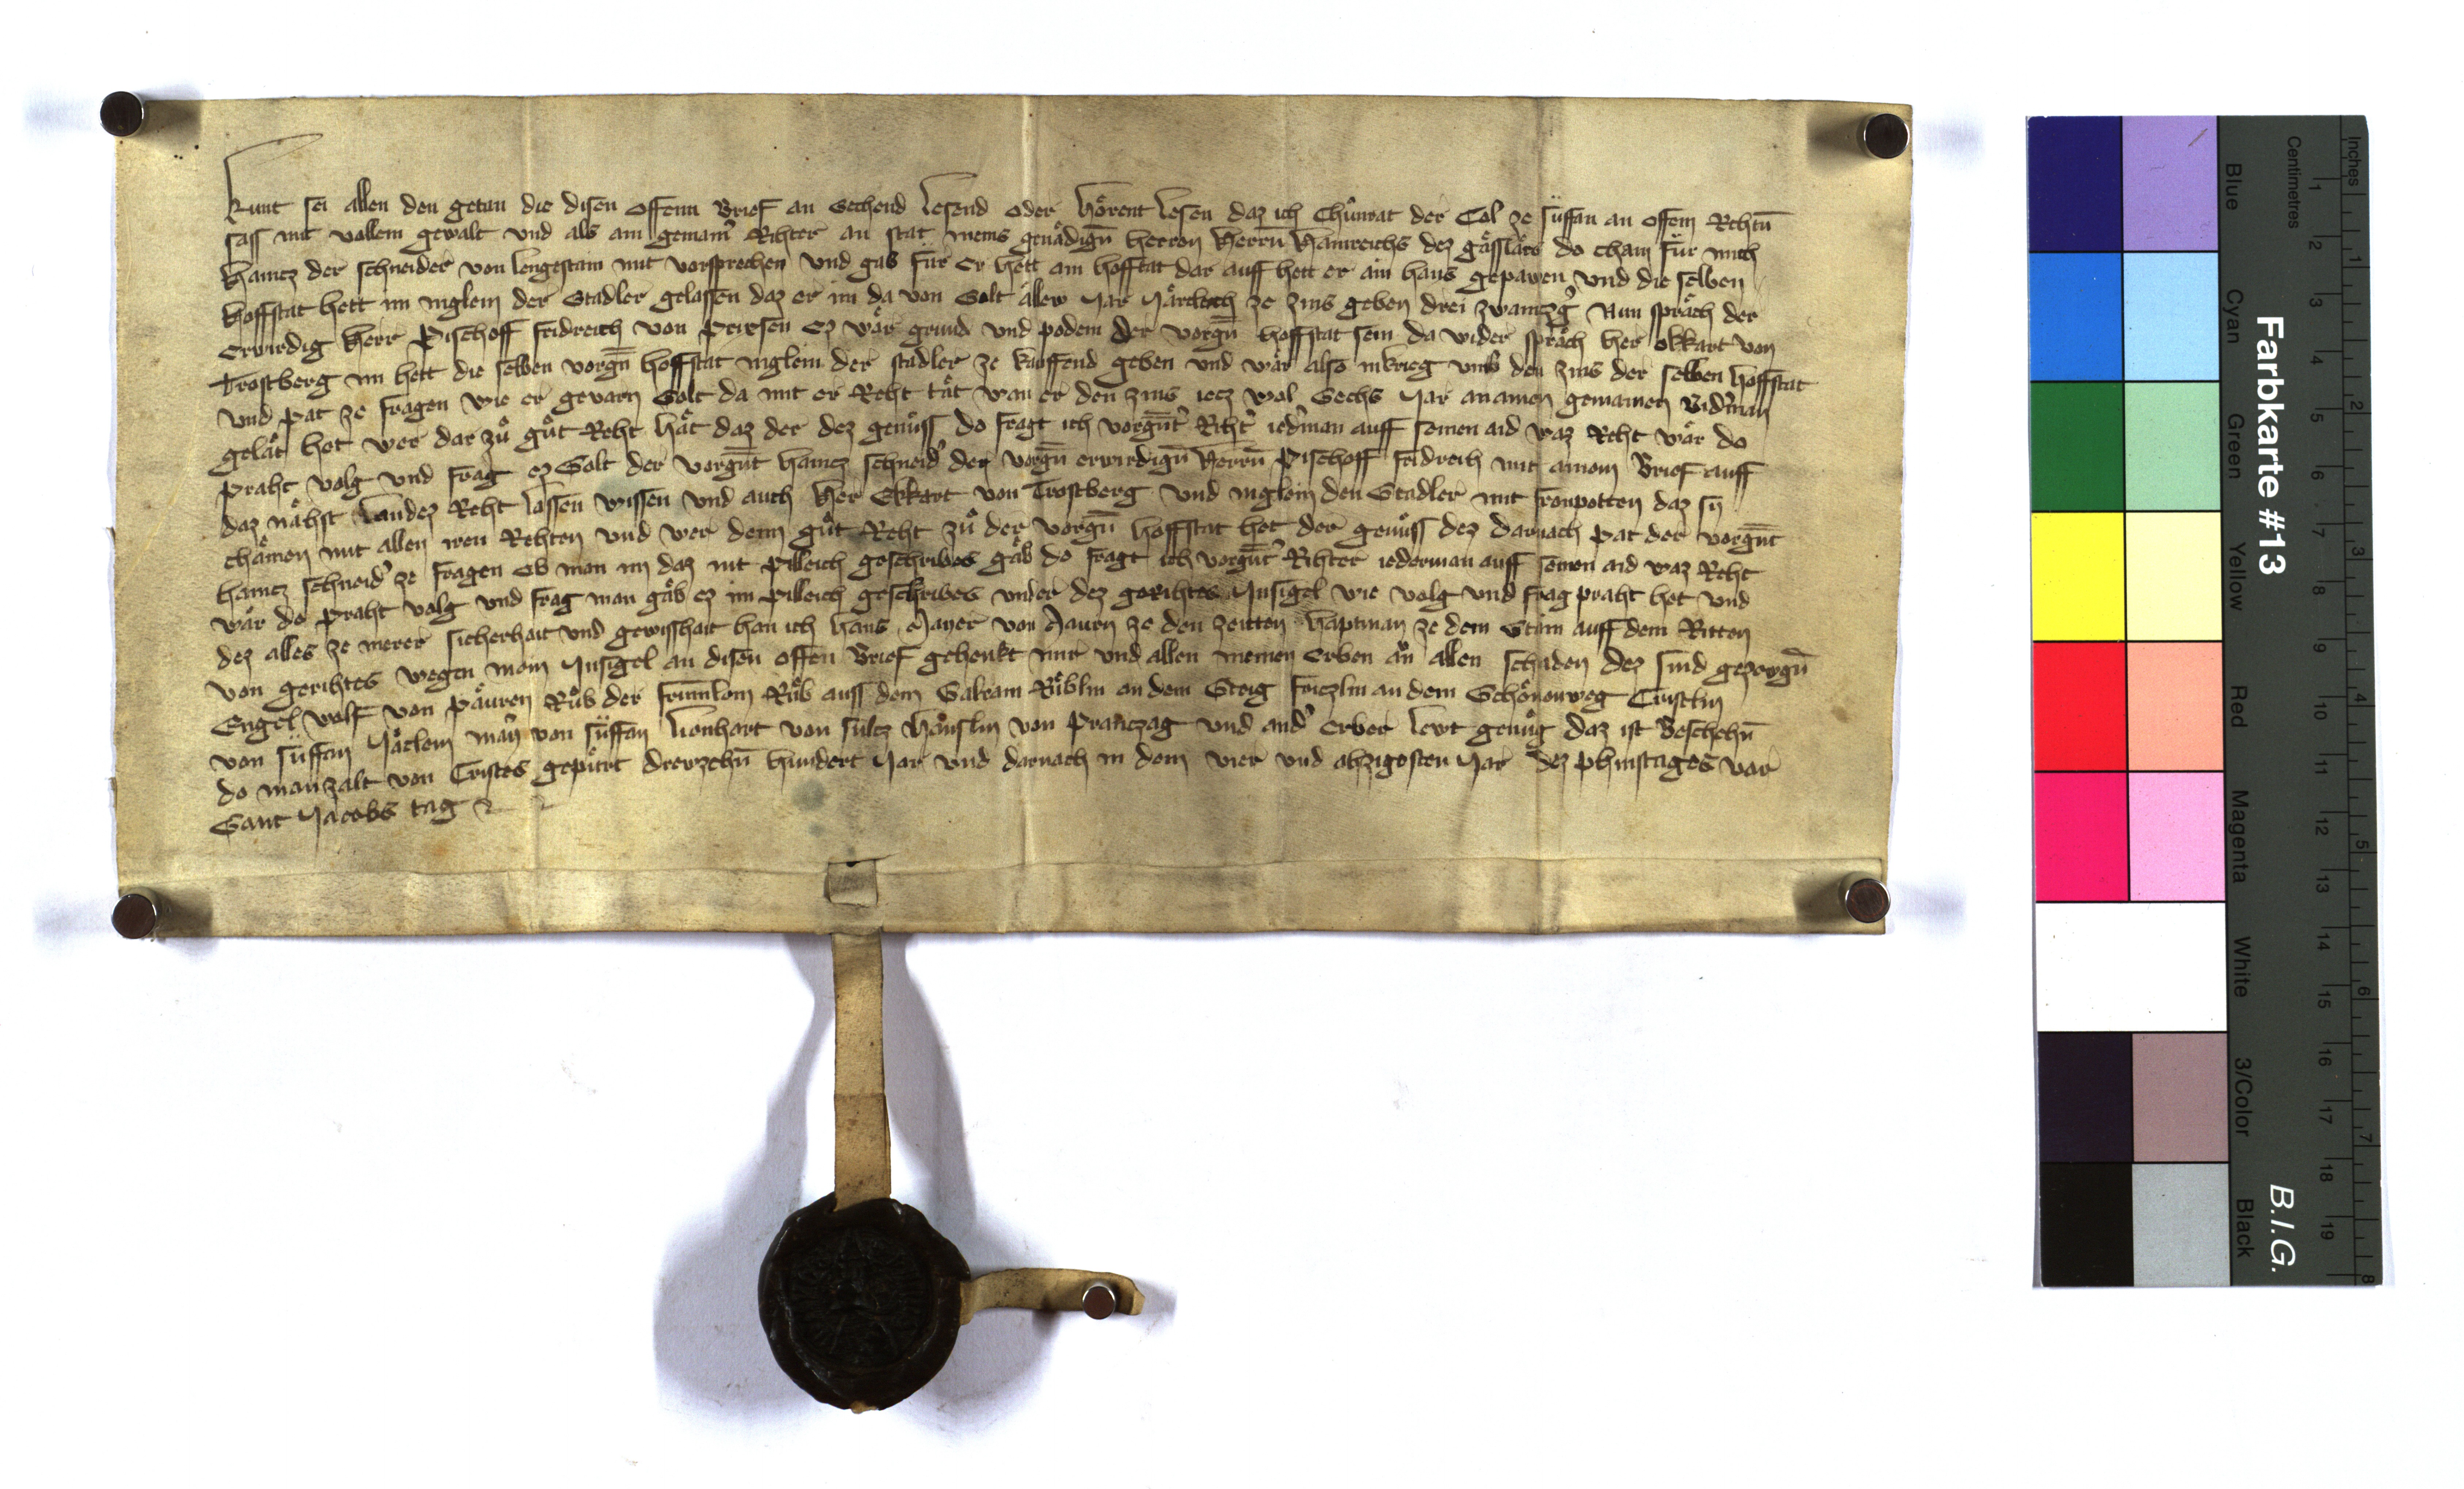 Kunt sei allen den getan die disen offenn Brief an Sechend Lesend oder hörent Lesen daz ich Chůnrat der Col ze süffan an offem Rehtn̄
sass mit vollem gewalt vnd als ain gemain' Rihter an stat meins genädign̄ herren Herrn̄ Hainreichs dez gässlärs do cham für mich
Haincz der schneider von lengestain mit vorsprechen vnd gab für Er hett ain hofstat dar auff hett er ain haus gepawen vnd die selben
hoffstat hett im niglein der Stadler gelassen daz er im da von Solt allew Jar Järleich ze zins geben drei zwaintzg' Nun sprach der
Erwirdig Herr Pischoff fridreich von Prixsen Ez wär grund vnd podem der vorgn̄ hoffstat sein da wider sprach her ekkart von
Trostberg im hett die selben vorgn̄ hoffstat niglein der stadler ze kauffend geben vnd wär also in krieg vmb den zins der selben hoffstat
vnd pat ze fragen wie er gevarn Solt da mit er Reht tät wan er den zins iecz wol Sechs Jar an ainen gemainen Bid'man
gelät het wer dar zů gůt Reht hät daz der dez genůss do fragt ich vorgn̄t' Riht' ied'man auff seinen aid waz Reht wär do
praht volg vnd frag ez Solt der vorgn̄t haincz schneid' den vorgn̄ erwirdign̄ Herrn̄ Pischoff fridreich mit ainem Brief auff
daz nähst Landez Reht lassen wissen vnd auch Her Ekkart von Trostberg vnd niglein den Stadler mit fronpotten daz si
chämen mit allen iren Rehten vnd wer denn gůt Reht zů der vorgn̄ hoffstat het der genůss dez darnach pat der vorgn̄t
haincz schneid' ze fragen Ob man im daz iht pilleich geschribes gäb do fragt ich vorgn̄t' Rihter iederman auff seinen aid waz Reht
wär do praht volg vnd frag man gäb ez im pilleich geschribes vnder dez gerihtes Insigel wie volg vnd frag praht het vnd
dez alles ze merer sicherhait vnd gewisshait han ich hans Mayer von Mauren ze den zeitten haptman ze dem Stain auff dem Ritten
von gerihtes wegen mein Insigel an disen offen Brief gehenkt mir vnd allen meinen Erben ån allen schaden Dez sind gezewgn̄
Engel wolf von päuren Růb der Rüb auss dem Rüblin an dem Steig an dem Schönenweg Cristlin
von süffan Jäclein von süffan Lienhart von sulcz Häuslin von Pranczag vnd and' Erber Lewt genůg daz ist Beschehn̄
do man zalt von Cristes gepürt drewzehn̄ hundert Jar vnd darnach in dem vier vnd ahzigosten Jar dez phinstages vor
Sant Jacobs tag
Farbkarte #13
B.I.G.
Inches
Centimetres
Blue
Cyan
Green
Yellow
Red
Magenta
White
3/Color
Black
1 2 3 4 5 6 7 8 9 10 11 12 13 14 15 16 17 18 19
1 2 3 4 5 6 7 8